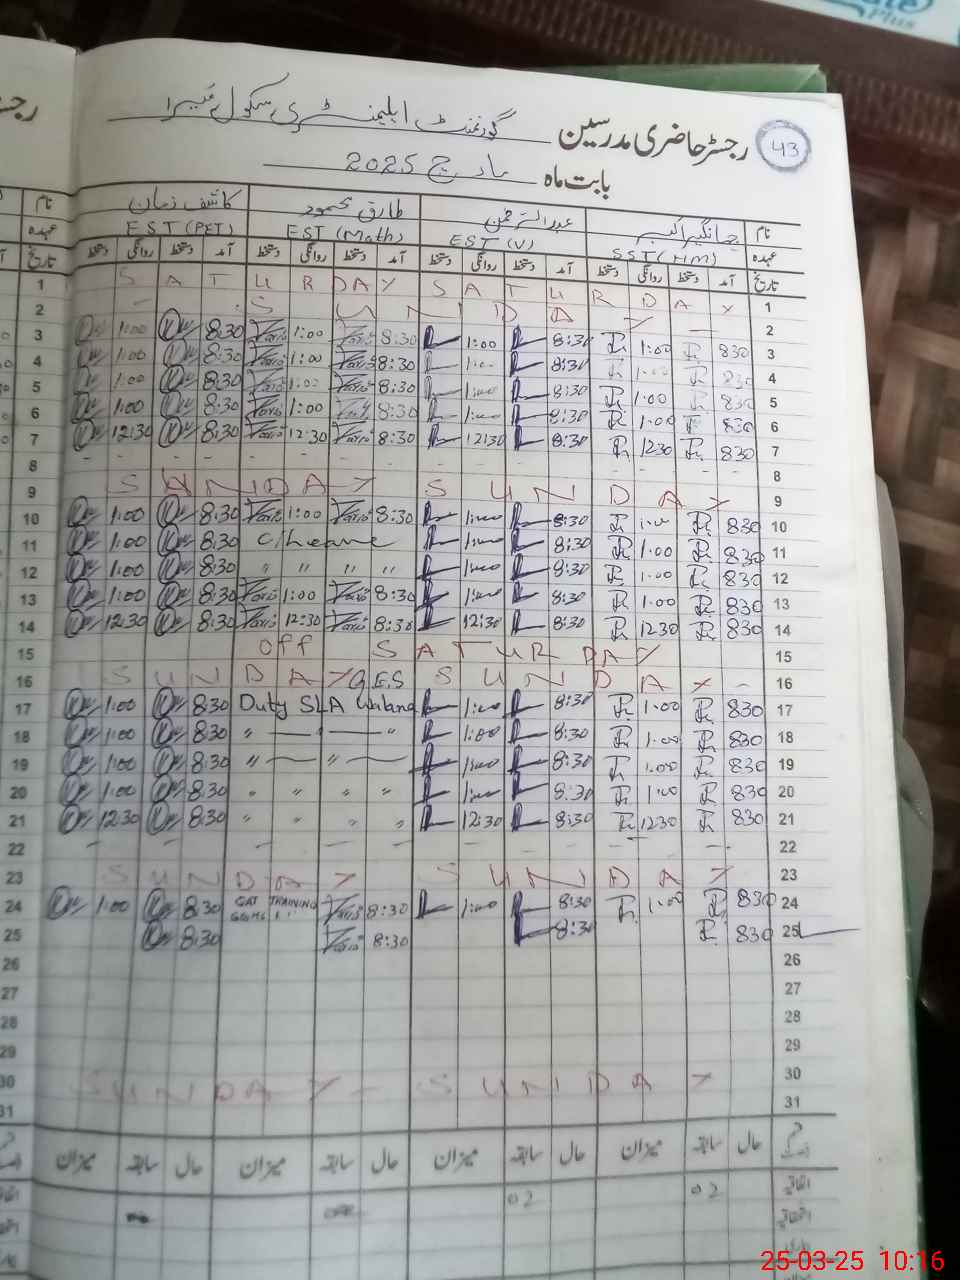 Plus
43
رجسٹر حاضری مدرسین گورنمنٹ ایلیمنٹری سکول
بابت ماہ مارچ 2025
نام جہانگیر اکبر عبدالرحمن طارق محمود کاشف زمان نام
عہدہ SST(HM) EST(V) EST(Math) EST(PET) عہدہ
تاریخ آمد دستخط روانگی دستخط آمد دستخط روانگی دستخط آمد دستخط روانگی دستخط آمد دستخط روانگی دستخط تاریخ
1 SATURDAY SATURDAY 1
2 SUNDAY 2
3 1:00 8:30 1:00 8:30 1:00 8:30 1:00 830 3
4 1:00 8:30 1:00 8:30 1:00 8:30 1:00 830 4
5 1:00 8:30 1:00 8:30 1:00 8:30 1:00 830 5
6 1:00 8:30 1:00 8:30 1:00 8:30 1:00 830 6
7 12:30 8:30 12:30 8:30 12:30 8:30 1230 830 7
8 - - - - - - 8
9 SUNDAY SUNDAY 9
10 1:00 8:30 1:00 8:30 1:00 8:30 1:00 830 10
11 1:00 8:30 C/Leave 1:00 8:30 1:00 830 11
12 1:00 8:30 " " " " 1:00 8:30 1:00 830 12
13 1:00 8:30 1:00 8:30 1:00 8:30 1:00 830 13
14 12:30 8:30 12:30 8:30 12:30 8:30 1230 830 14
15 Off SATURDAY 15
16 SUNDAY GES SUNDAY - 16
17 1:00 8:30 Duty SLA 1:00 8:30 1:00 830 17
18 1:00 8:30 " — — " 1:00 8:30 1:00 830 18
19 1:00 8:30 " — " — 1:00 8:30 1:00 830 19
20 1:00 8:30 " " " " 1:00 8:30 1:00 830 20
21 12:30 8:30 " " " " 12:30 8:30 1230 830 21
22 - - - - - - 22
23 SUNDAY SUNDAY 23
24 1:00 8:30 TRAINING 8:30 1:00 8:30 1:00 830 24
25 8:30 8:30 8:30 830 25
26 26
27 27
28 28
29 29
30 SUNDAY - SUNDAY 30
31 31
حال سابقہ میزان حال سابقہ میزان حال سابقہ میزان حال سابقہ میزان
02 02
25-03-25 10:16